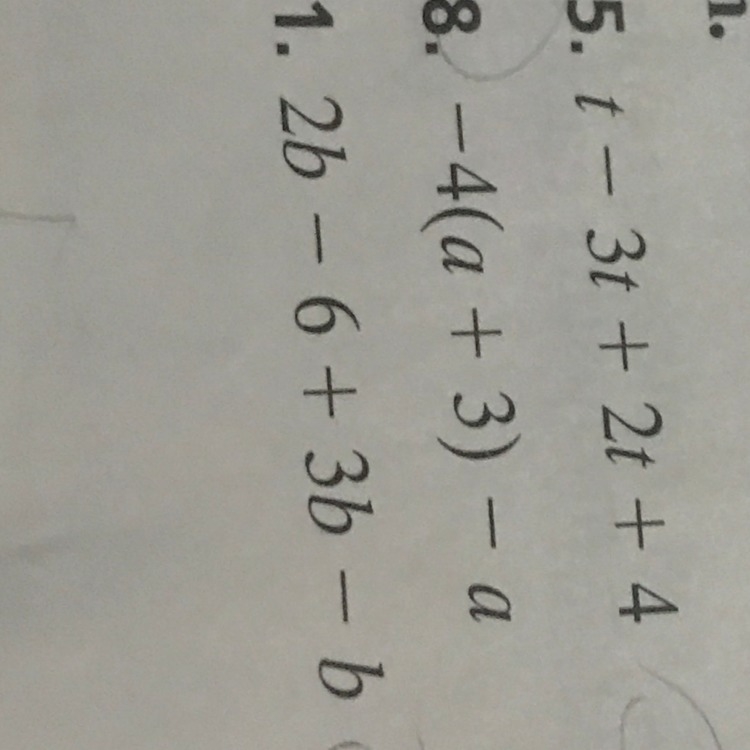 5. t − 3t + 2t + 4
8. −4(a + 3) − a
1. 2b − 6 + 3b − b